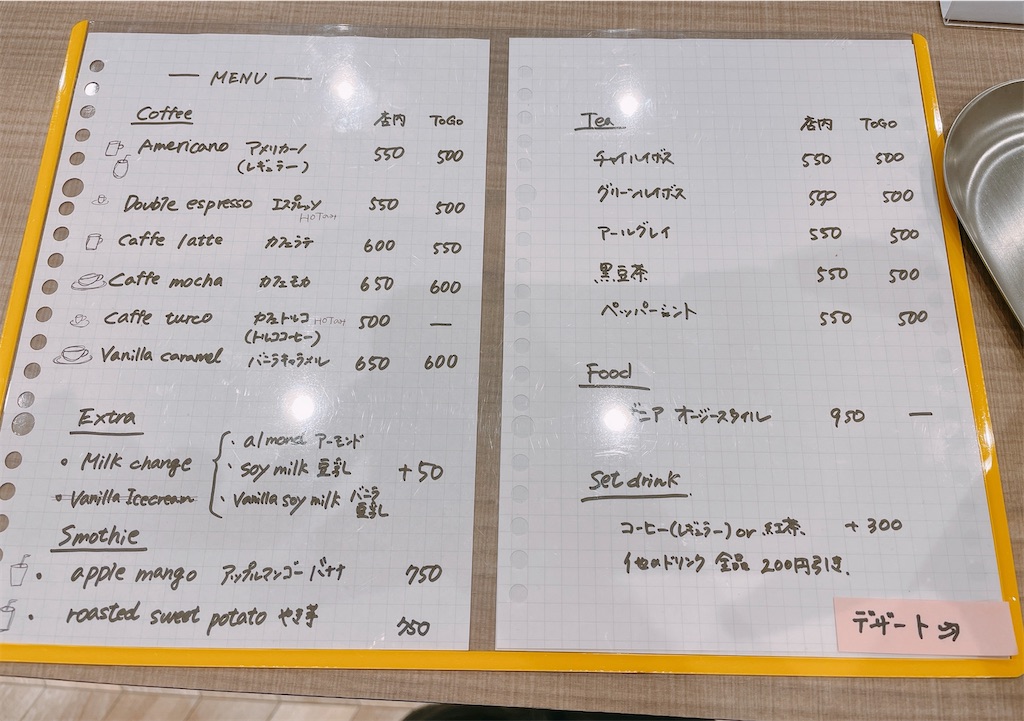 MENU
Coffee 店内 ToGo
Americano アメリカーノ 550 500
(レギュラー)
Double espresso エスプレッソ 550 500
HOTのみ
Caffe latte カフェラテ 600 550
Caffe mocha カフェモカ 650 600
Caffe turco カフェトルコ HOTのみ 500 —
(トルココーヒー)
Vanilla caramel バニラキャラメル 650 600
Extra
・Milk change
・Vanilla Icecream
・almond アーモンド
・soy milk 豆乳 +50
・Vanilla soy milk バニラ
豆乳
Smothie
・apple mango アップルマンゴーバナナ 750
・roasted sweet potato やき芋 750
Tea 店内 ToGo
チャイルイボス 550 500
グリーンルイボス 500
アールグレイ 550 500
黒豆茶 550 500
ペッパーミント 550 500
Food
オージースタイル 950 —
Set drink
コーヒー(レギュラー) or 紅茶 +300
他のドリンク 全品 200円引き.
デザート